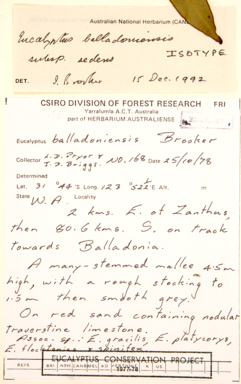 Australian National Herbarium (CAN
Eucalyptus balladoniensis
subsp. sedens
ISOTYPE
DET. I. Brooker 15 Dec. 1992
CSIRO DIVISION OF FOREST RESEARCH FRI
Yarralumla A.C.T. Australia
part of HERBARIUM AUSTRALIENSE
Eucalyptus balladoniensis Brooker
Collector L.D. Pryor & J.D. Briggs. NO. 168 Date 25/10/78
Determined
Lat. 31° 44' S Long. 123° 52' E Alt. m
State W.A. Locality
2 kms. E. of Zanthus,
then 80.6 kms. S. on track
towards Balladonia.
A many-stemmed mallee 4.5m
high, with a rough stocking to
1.5m then smooth grey.
On red sand containing nodular
traverstine limestone.
Assoc. sp.: E. gracilis, E. platycorys,
E.
EUCALYPTUS CONSERVATION PROJECT
1977-78
REFS